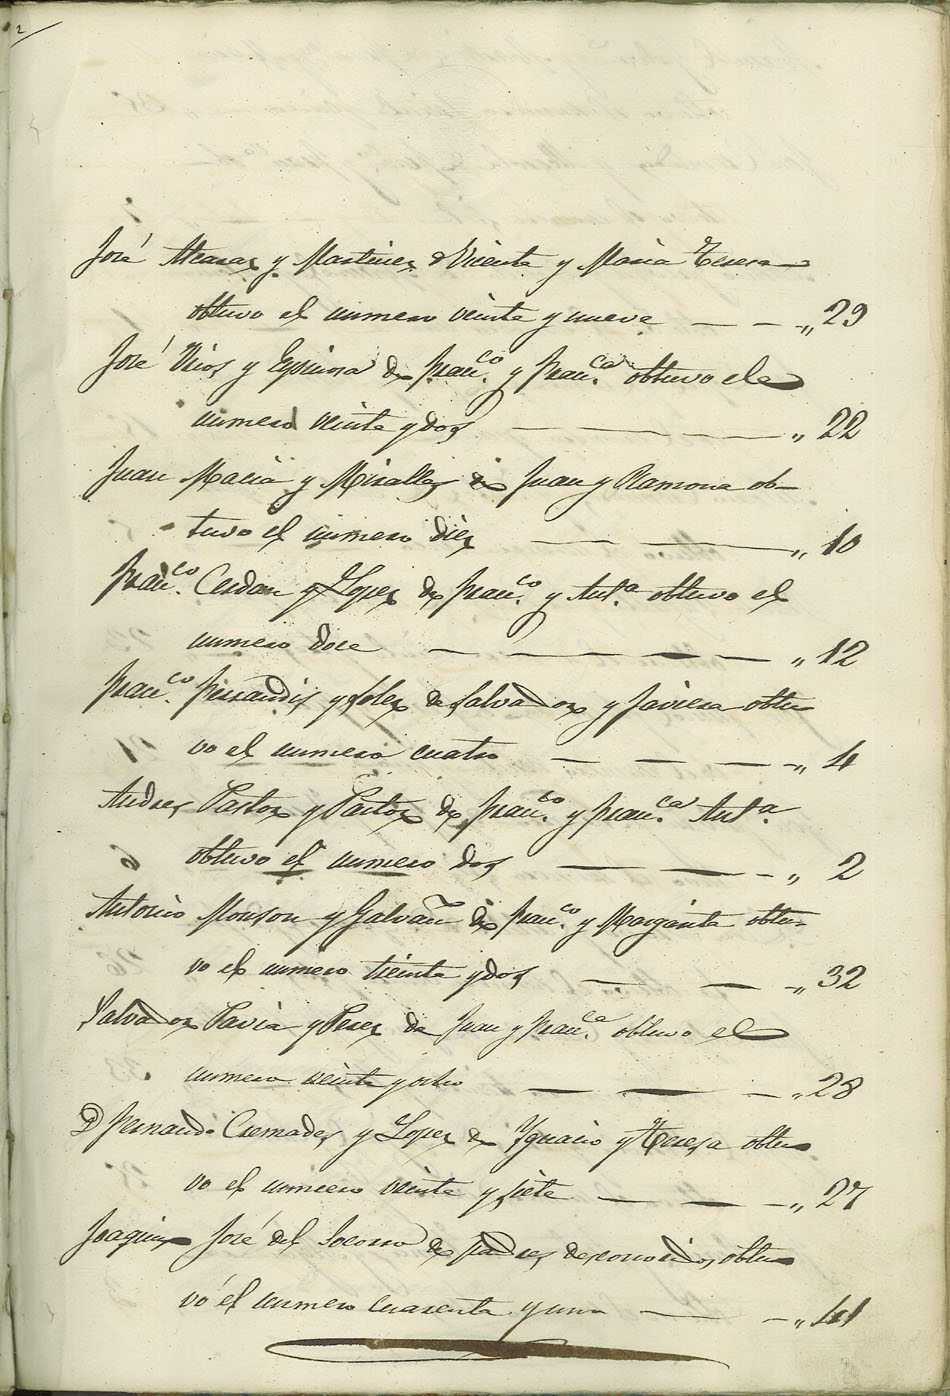 2
José Alcaraz y Martinez de Vicente y Maria Teresa
obtuvo el numero veinte y nueve — — „ 29
José Rios y Espinosa de Franco. y Franca. obtuvo el
numero veinte y dos — — — „ 22
Juan Macia y Miralles de Juan y Ramona ob-
tuvo el numero diez — — „ 10
Franco. Cerdan y Lopez de Franco. y Anta. obtuvo el
numero doce — — — — — „ 12
Franco. Ferrandis y Soler de Salvador y Javiera obtu
vo el numero cuatro — — — „ 4
Andres Pastor y Pastor de Franco. y Franca. Anta.
obtuvo el numero dos — — — „ 2
Antonio Monzon y Galvañ de Franco. y Margarita obtu-
vo el numero treinta y dos — — — „ 32
Salvador Pavia y Perez de Juan y Franca. obtuvo el
numero veinte y ocho — — — „ 28
D Fernando Cremades y Lopez de Ygnacio y Teresa obtu
vo el numero veinte y siete — — — „ 27
Joaquin José del Socorro de padres desconocidos obtu
vó el numero cuarenta y uno — — „ 41